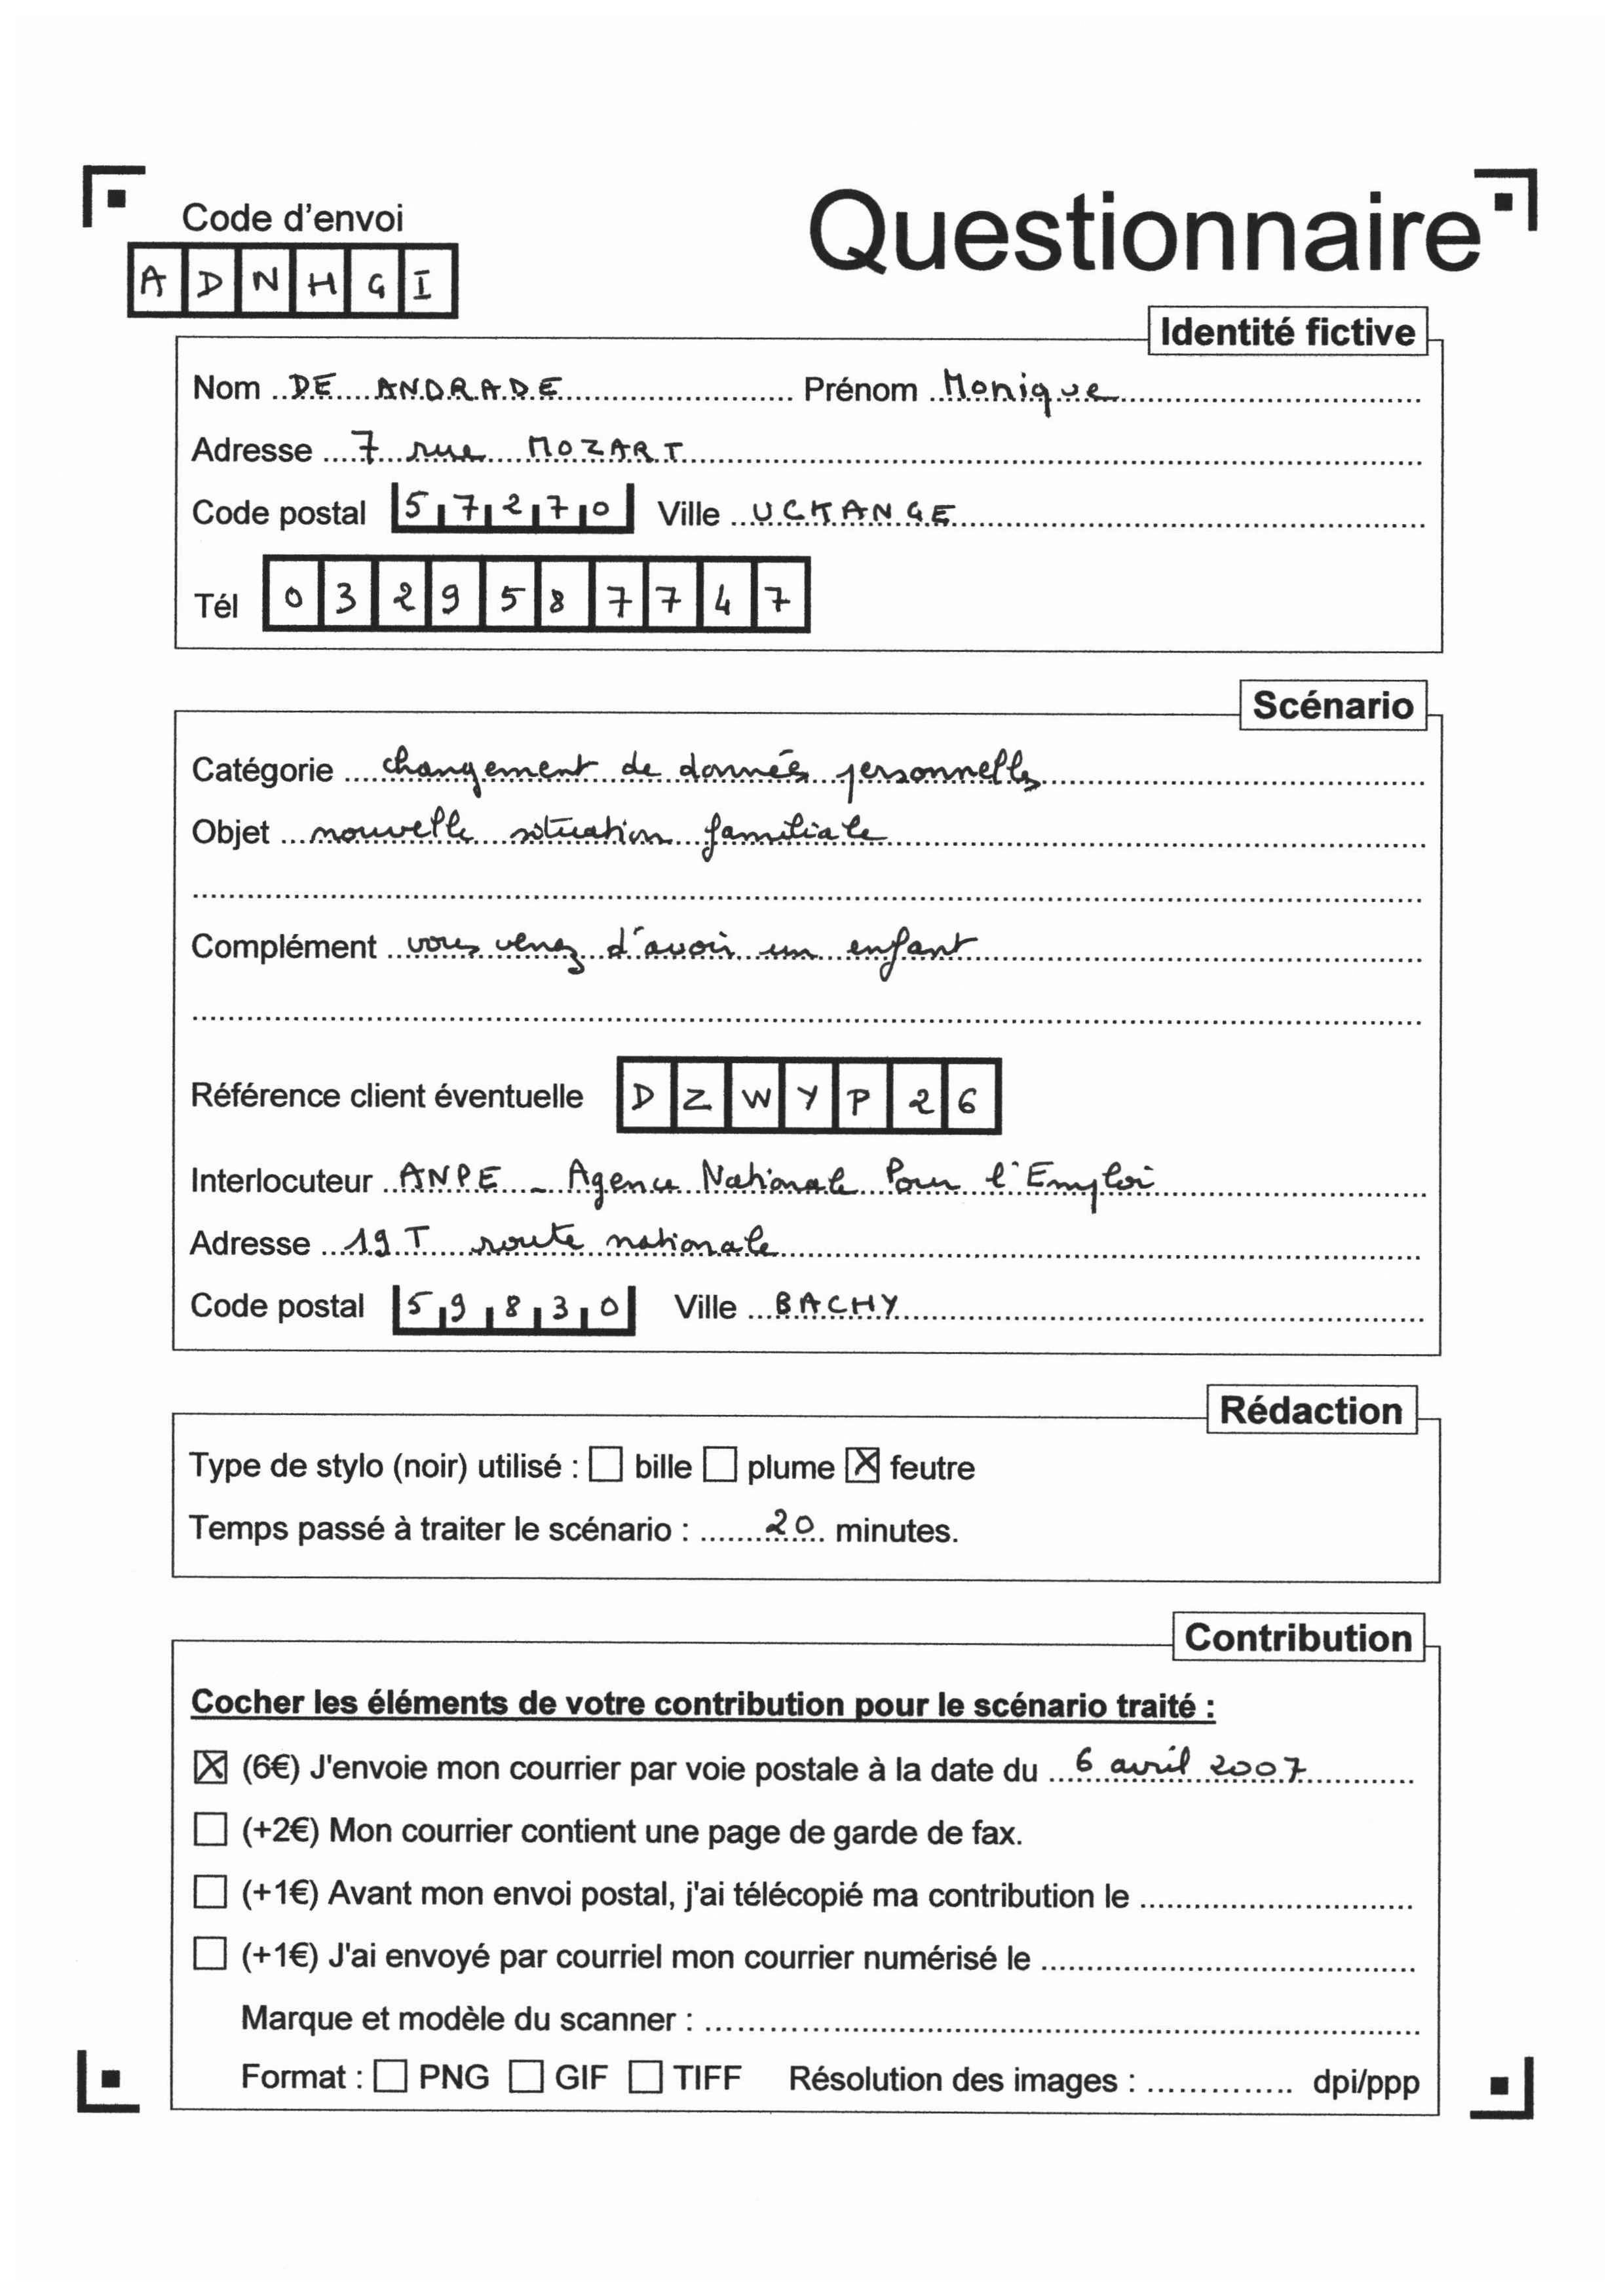 Code d'envoi
ADNHGI
Questionnaire
Identité fictive
Nom DE ANDRADE Prénom Monique
Adresse 7 rue MOZART
Code postal 57270 Ville UCKANGE
Tél 0329587747
Scénario
Catégorie changement de données personnelles
Objet nouvelle situation familiale
Complément vous venez d'avoir un enfant
Référence client éventuelle DZWYP26
Interlocuteur ANPE - Agence Nationale Pour l'Emploi
Adresse 19T route nationale
Code postal 59830 Ville BACHY
Rédaction
Type de stylo (noir) utilisé : ☐ bille ☐ plume ☒ feutre
Temps passé à traiter le scénario : 20 minutes.
Contribution
Cocher les éléments de votre contribution pour le scénario traité :
☒ (6€) J'envoie mon courrier par voie postale à la date du 6 avril 2007
☐ (+2€) Mon courrier contient une page de garde de fax.
☐ (+1€) Avant mon envoi postal, j'ai télécopié ma contribution le
☐ (+1€) J'ai envoyé par courriel mon courrier numérisé le
Marque et modèle du scanner :
Format : ☐ PNG ☐ GIF ☐ TIFF Résolution des images : dpi/ppp